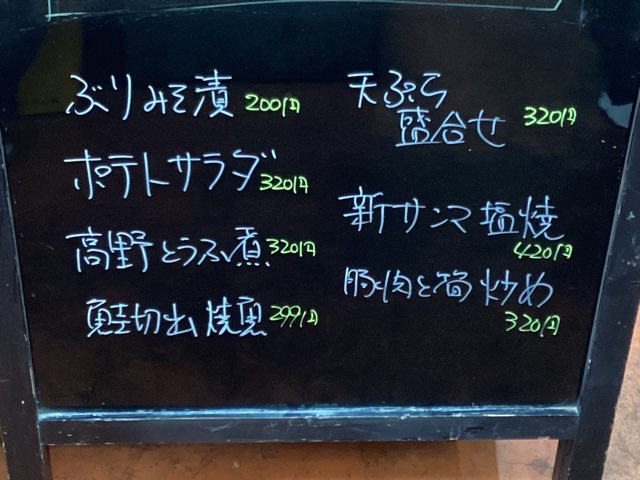 ぶりみそ漬 200円
ポテトサラダ 320円
高野とうふ煮 320円
鮭切出焼 299円
天ぷら
盛合せ 320円
新サンマ塩焼
420円
豚肉と 炒め
320円